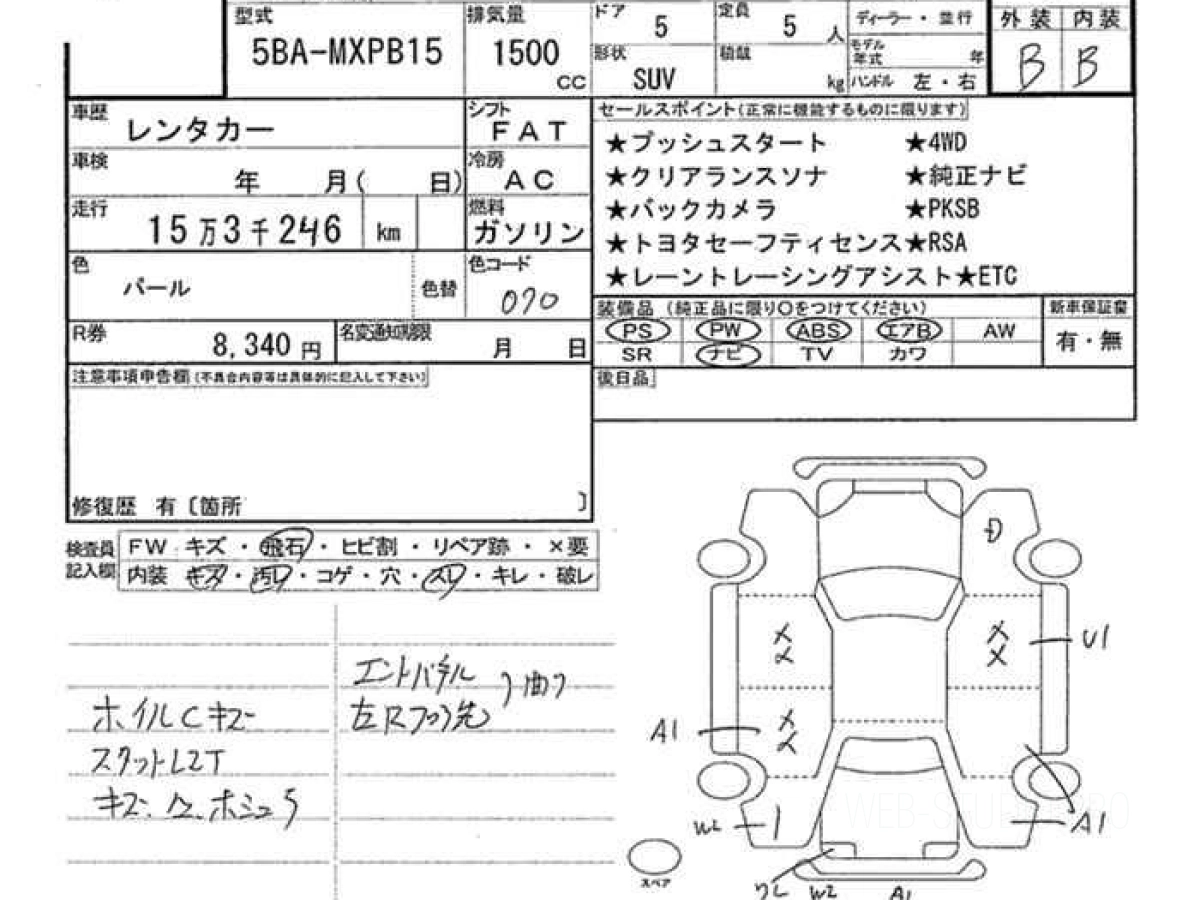 型式 排気量 ドア 5 定員 5 人 ディーラー・並行 外装 内装
5BA-MXPB15 1500 CC 形状 SUV 積載 kg モデル年式 年 ハンドル 左・右 B B
車歴 レンタカー シフト FAT
車検 年 月( 日) 冷房 AC
走行 15万3千246 km 燃料 ガソリン
色 パール 色替 色コード 070
R券 8,340 円 名変通知期限 月 日
注意事項申告欄 (不具合内容等は具体的に記入して下さい)
修復歴 有 〔箇所 〕
セールスポイント(正常に機能するものに限ります)
★プッシュスタート ★4WD
★クリアランスソナ ★純正ナビ
★バックカメラ ★PKSB
★トヨタセーフティセンス★RSA
★レーントレーシングアシスト★ETC
装備品 (純正品に限り○をつけてください) 新車保証書
PS PW ABS エアB AW 有・無
SR ナビ TV カワ
後日品
検査員記入欄 FW キズ・飛石・ヒビ割・リペア跡・×要
内装 キズ・汚レ・コゲ・穴・スレ・キレ・破レ
ホイルCキズ
キズ
左R
U1
A1
A1
W2
A1
スペア